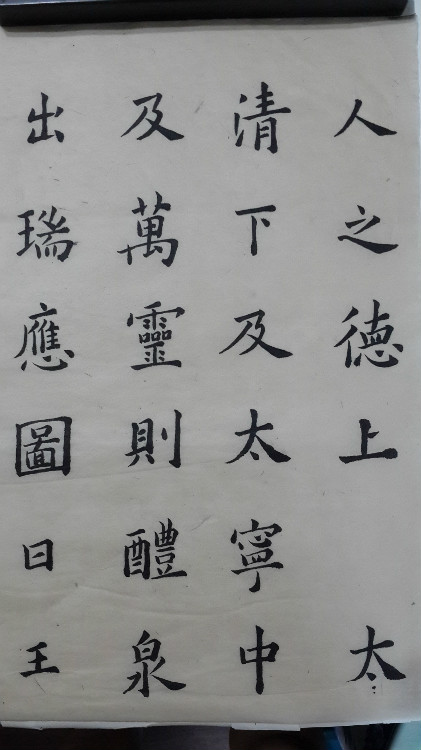 人之德上太
清下及太寧中
及萬靈則醴泉
出瑞應圖曰王